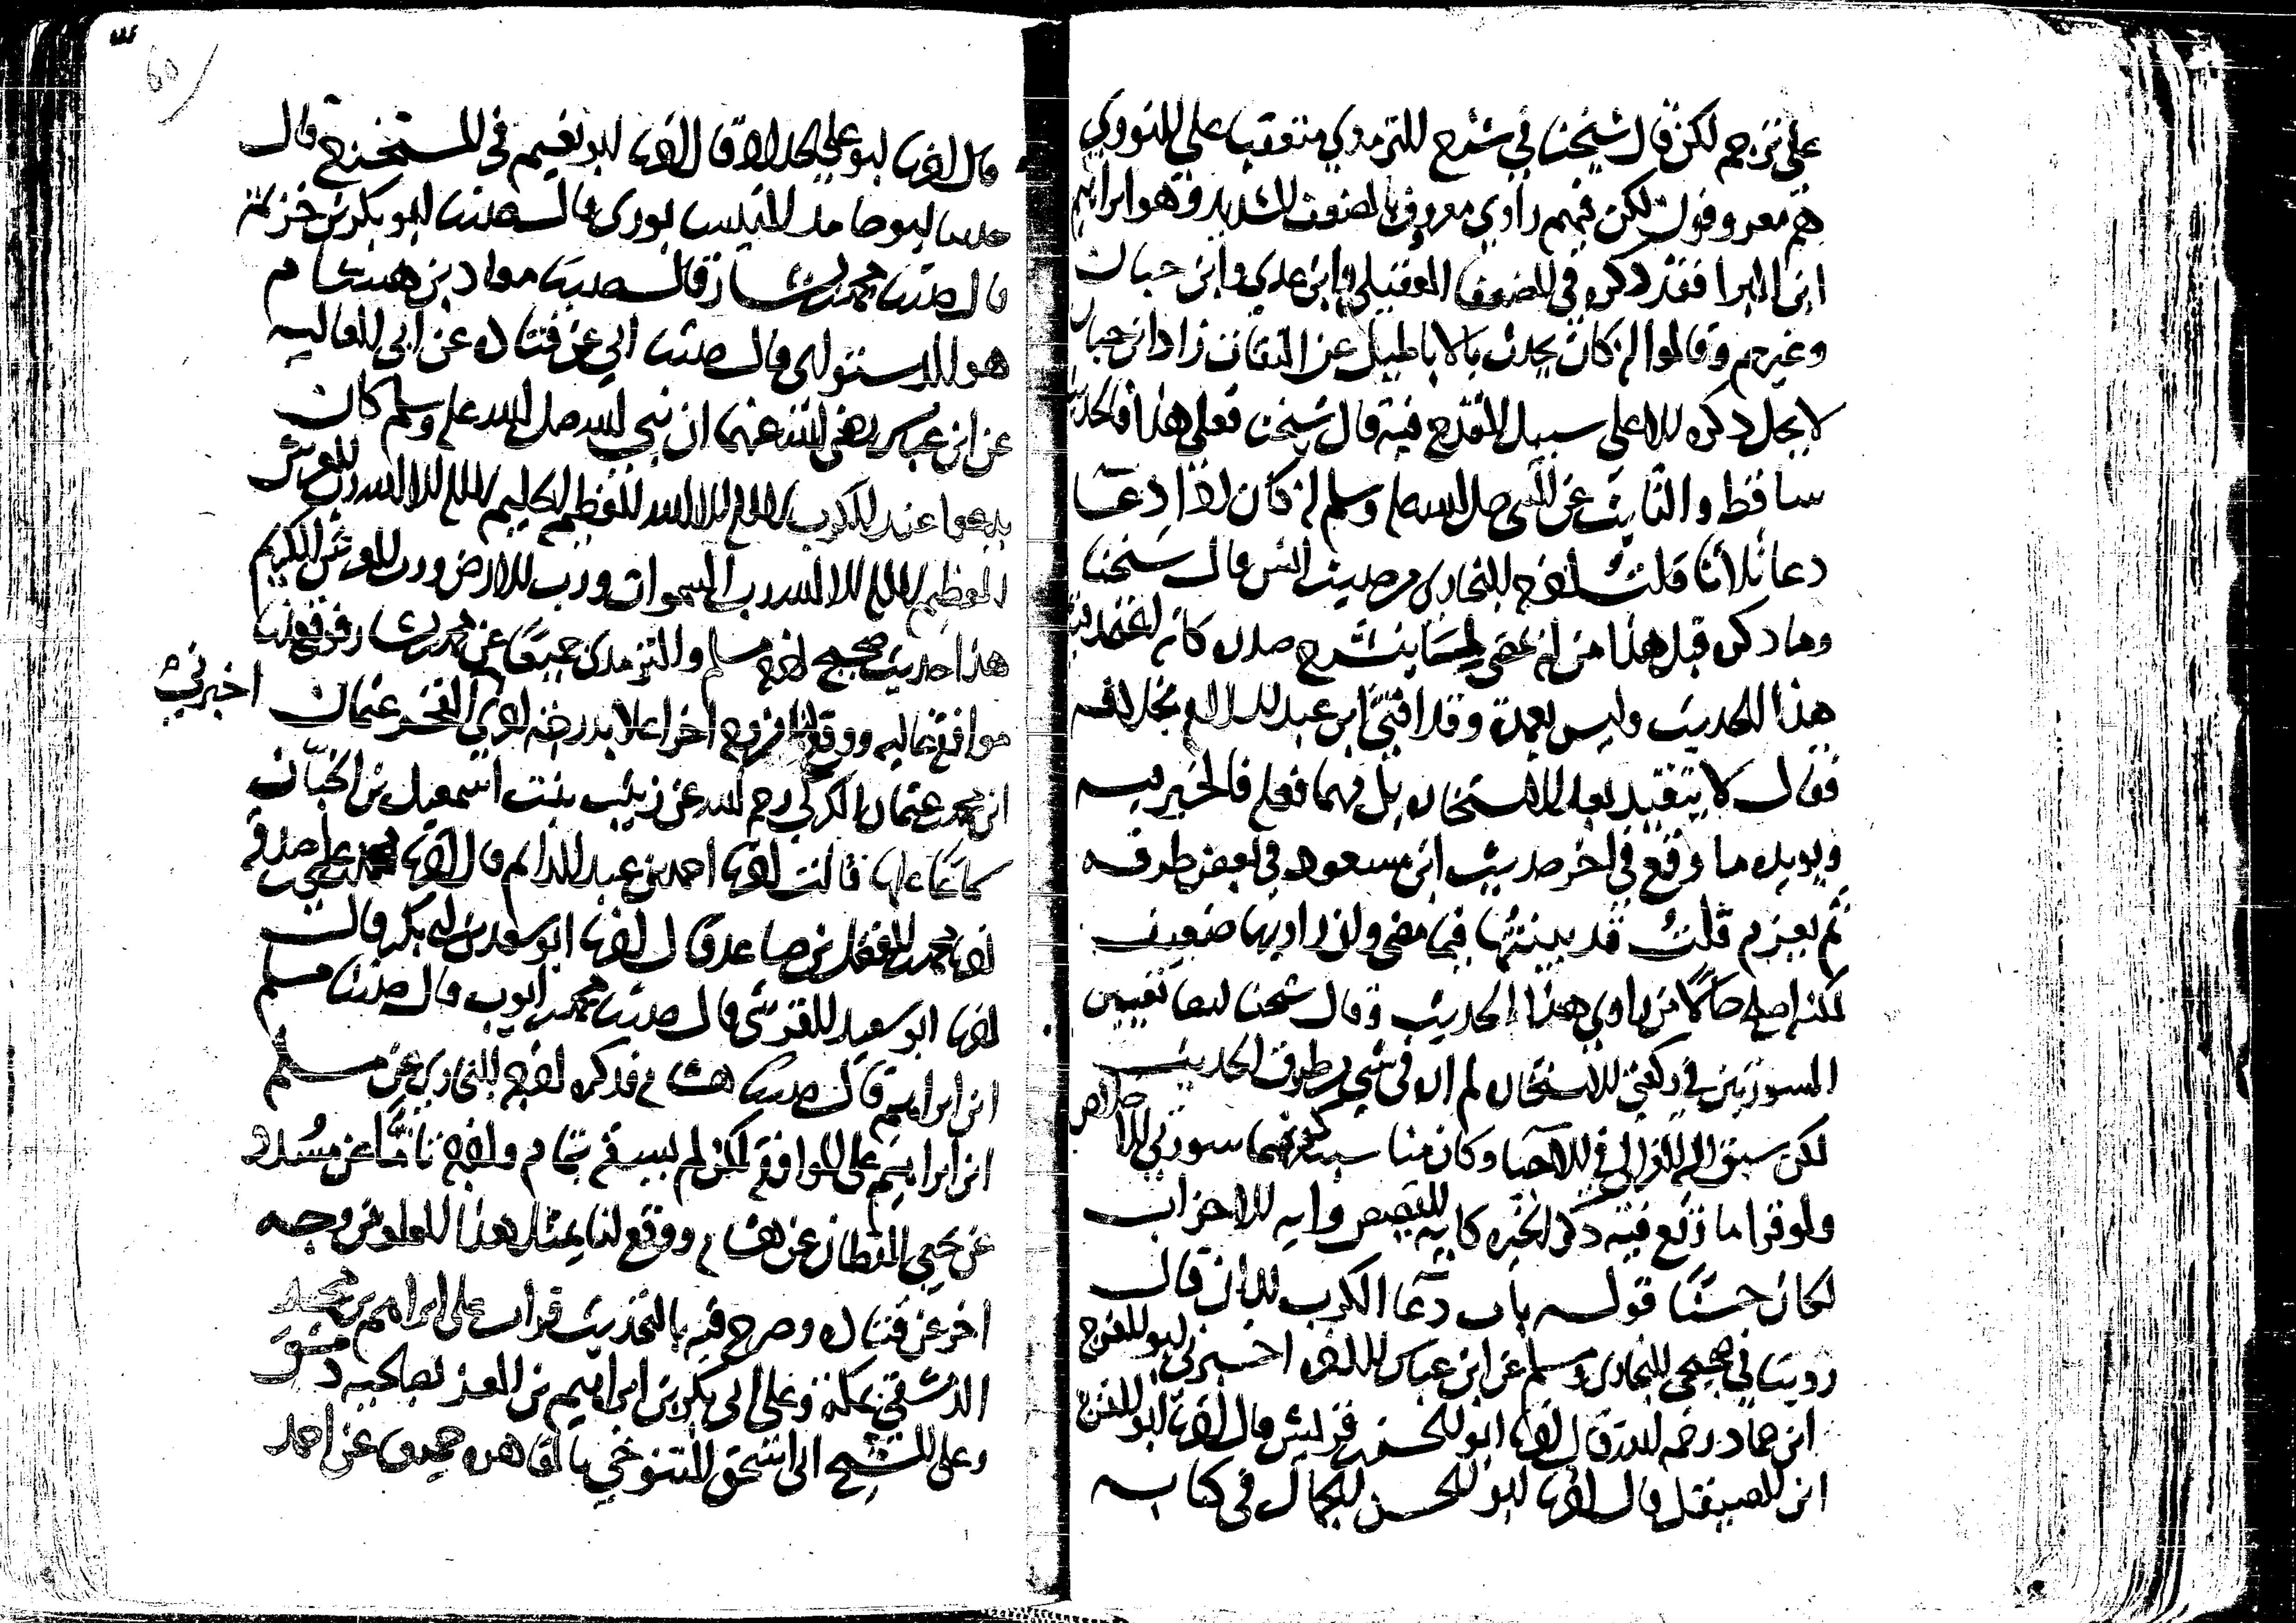 على تراجم لكن قال شيخنا في شرح الترمذي متعقبا على النووي
هم معروفون لكن فيهم راوي معروف بالضعف الشديد وهو ابراهيم
ابن البرا فقد ذكره في الضعفا العقيلي وابن عدي وابن حبان
وغيرهم وقالوا انه كان يحدث بالاباطيل عن الثقات زاد ابن حبان
لا يحل ذكره الا على سبيل القدح فيه قال شيخنا فعلى هذا فالحديث
ساقط والثابت عن النبي صلى الله عليه وسلم انه كان اذا دعا
دعا ثلاثا قلت اخرجه البخاري من حديث انس قال شيخنا
وما ذكره قبل هذا من انه يمضي لما ينشرح صدره كانه اعتمد فيه
هذا الحديث وليس بعمدة وقد افتى ابن عبد السلام بخلافه
فقال لا يتقيد بعد الاستخارة بل مهما فعله فالخير فيه
ويويده ما وقع في اخر حديث ابن مسعود في بعض طرقه
ثم يعزم قلت قد بينتها فيما مضى وان راويها ضعيف
لكنه اصلح حالا من راوي هذا الحديث وقال شيخنا ايضا تعيين
السورتين في ركعتي الاستخارة لم اره في شي من طرق الحديث
لكن سبق اليه الغزالي في الاحيا وكان مناسبته كونهما سورتي الاخلاص
ولو قرا ما وقع فيه ذكر الخيرة كاية القصص واية الاحزاب
لكان حسنا قوله باب دعا الكرب الى ان قال
روينا في صحيحي البخاري ومسلم عن ابن عباس الى اخره اخبرني ابو الفرج
ابن حماد رحمه الله قال اخبرنا ابو الحسن بن قريش قال اخبرنا ابو الفرج
ابن الصيقل قال اخبرنا ابو الحسن الجمال في كتابه
قال اخبرنا ابو علي الحداد قال اخبرنا ابو نعيم في المستخرج قال
حدثنا ابو حامد النيسابوري قال حدثنا ابو بكر بن خزيمة
قال حدثنا محمد بن بشار قال حدثنا معاذ بن هشام
هو الدستوائي قال حدثنا ابي عن قتادة عن ابي العالية
عن ابن عباس رضي الله عنهما ان نبي الله صلى الله عليه وسلم كان
يدعوا عند الكرب لا اله الا الله العظيم الحليم لا اله الا الله رب العرش
العظيم لا اله الا الله رب السموات ورب الارض ورب العرش الكريم
هذا حديث صحيح اخرجه مسلم والترمذي جميعا عن محمد بن بشار فوقع لنا
موافقة عالية ووقع لنا من وجه اخر اعلا بدرجة اخرى
اخبرني الفخر عثمان
ابن محمد بن عثمان الكركي رحمه الله عن زينب بنت اسمعيل بن الخباز
سماعا عليها قالت اخبرنا احمد بن عبد الدايم قال اخبرنا محمد بن علي بن صدقة
اخبرنا محمد بن الفضل بن صاعد قال اخبرنا ابو سعد بن ابي بكر قال
اخبرنا ابو سعيد القرشي قال حدثنا محمد بن ايوب قال حدثنا مسلم
ابن ابراهيم قال حدثنا هشام فذكره اخرجه البخاري عن مسلم
ابن ابراهيم على الموافقة لكن لم يسقه بتمامه واخرجه تاما عن مسدد
عن يحيى القطان عن هشام ووقع لنا بمثل هذا العلو من وجه
اخر عن قتادة وصرح فيه بالتحديث قرات على ابراهيم بن محمد
الدمشقي بمكة وعلى ابي بكر بن ابراهيم بن العز بصالحية دمشق
وعلى الشيخ ابي اسحق التنوخي بالقاهرة جميعا عن احمد